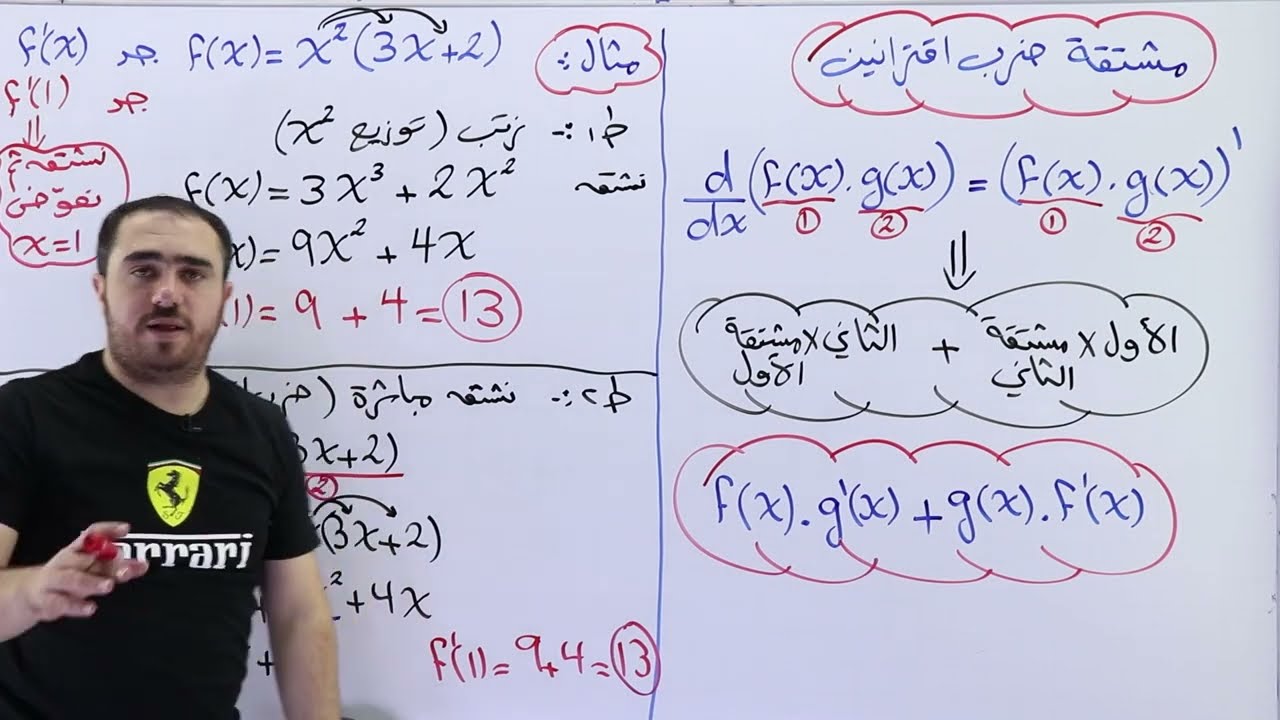 مشتقة ضرب اقترانين
d/dx (f(x) . g(x)) = (f(x) . g(x))'
① ② ① ②
⇓
الأول × مشتقة الثاني + الثاني × مشتقة الأول
f(x) . g'(x) + g(x) . f'(x)
مثال :- f(x) = x²(3x+2) جد f'(x)
جد f'(1)
⇓
نفوض
x=1
ط١ :- نرتب (توزيع x²)
f(x) = 3x³ + 2x²
نشتقه
x) = 9x² + 4x
(1) = 9 + 4 = 13
ط٢ :- نشتقه مباشرة (ضرب
3x+2)
②
(3x+2)
² + 4x
+
f'(1) = 9+4 = 13
Ferrari